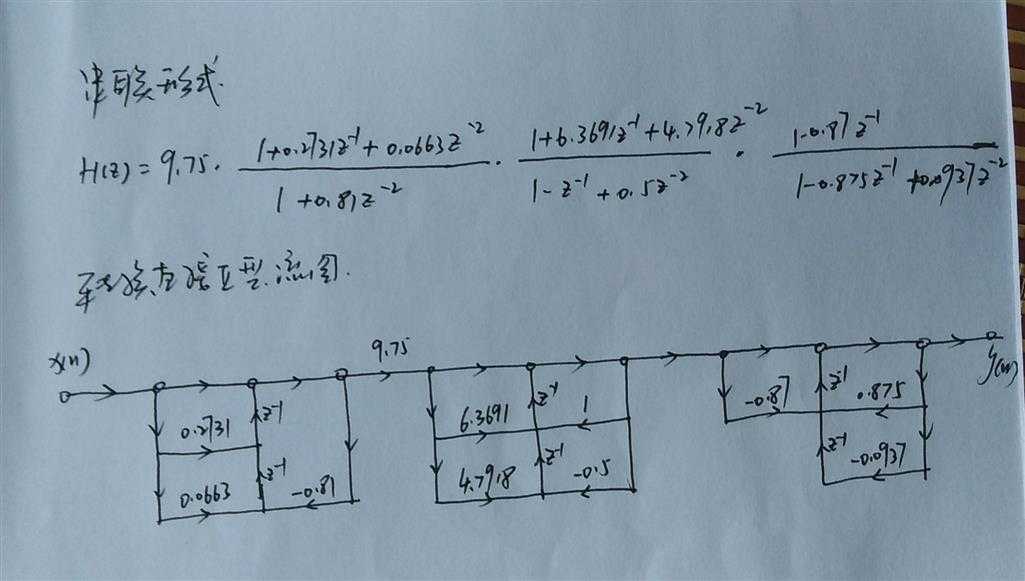 串联形式.
H(z) = 9.75 · (1+0.2731z⁻¹+0.0663z⁻²)/(1+0.81z⁻²) · (1+6.3691z⁻¹+4.7918z⁻²)/(1-z⁻¹+0.5z⁻²) · (1-0.87z⁻¹)/(1-0.875z⁻¹+0.0937z⁻²)
直接 II型流图.
x(n) 9.75 y(n)
0.2731 z⁻¹ 6.3691 z⁻¹ 1 -0.87 z⁻¹ 0.875
0.0663 z⁻¹ -0.81 4.7918 z⁻¹ -0.5 z⁻¹ -0.0937